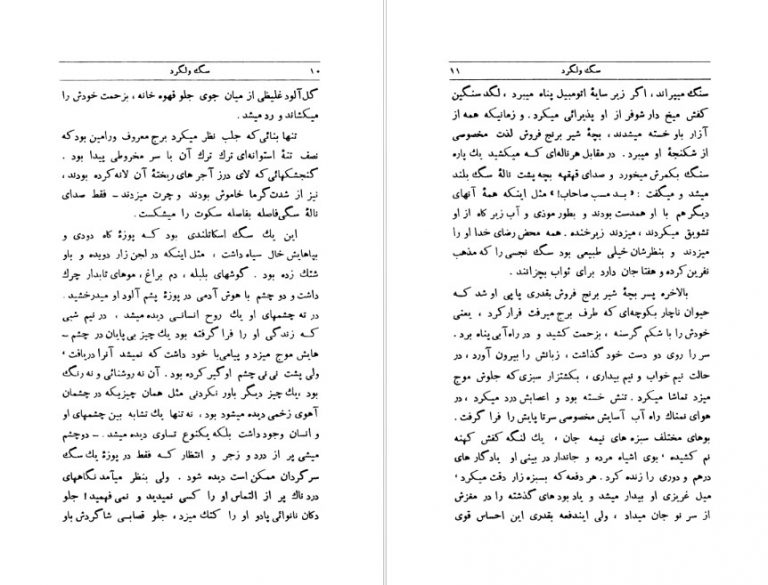 ۱۰ سگ ولگرد
گل‌آلود غلیظی از میان جوی جلو قهوه خانه ، بزحمت خودش را
میکشاند و رد میشد .
تنها بنائی‌که جلب نظر میکرد برج معروف ورامین بود که
نصف تنهٔ استوانه‌ای ترك ترك آن با سر مخروطی پیدا بود .
گنجشکهائی که لای درز آجر های ریختهٔ آن لانه کرده بودند ،
نیز از شدت گرما خاموش بودند و چرت میزدند – فقط صدای
نالهٔ سگی فاصله بفاصله سکوت را میشکست .
این یك سگ اسکاتلندی بود که پوزهٔ کاه دودی و
بپاهایش خال سیاه داشت ، مثل اینکه در لجن زار دویده و باو
شتك زده بود . گوشهای بلبله ، دم براغ ، موهای تابدار چرك
داشت و دو چشم با هوش آدمی در پوزهٔ پشم آلود او میدرخشید .
در ته چشمهای او یك روح انسانی دیده میشد ، در نیم شبی
که زندگی او را فرا گرفته بود یك چیز بی‌پایان در چشم –
هایش موج میزد و پیامی با خود داشت که نمیشد آنرا دریافت ،
ولی پشت نی نی چشم او گیر کرده بود . آن نه روشنائی و نه رنگ
بود ، یك چیز دیگر باور نکردنی مثل همان چیزیکه در چشمان
آهوی زخمی دیده میشود بود ، نه تنها یك تشابه بین چشمهای او
و انسان وجود داشت بلکه یکنوع تساوی دیده میشد . – دوچشم
میشی پر از درد و زجر و انتظار که فقط در پوزهٔ یك سگ
سرگردان ممکن است دیده شود . ولی بنظر میآمد نگاههای
درد ناك پر از التماس او را کسی نمیدید و نمی فهمید ! جلو
دکان نانوائی پادو او را کتك میزد ، جلو قصابی شاگردش باو
سگ ولگرد ۱۱
سنگ میپراند ، اگر زیر سایهٔ اتومبیل پناه میبرد ، لگد سنگین
کفش میخ دار شوفر از او پذیرائی میکرد . و زمانیکه همه از
آزار باو خسته میشدند ، بچهٔ شیر برنج فروش لذت مخصوصی
از شکنجهٔ او میبرد . در مقابل هر ناله‌ای که میکشید یك پاره
سنگ بکمرش میخورد و صدای قهقهه بچه پشت نالهٔ سگ بلند
میشد و میگفت : « بد مسب صاحاب! » مثل اینکه همهٔ آنهای
دیگر هم با او همدست بودند و بطور موذی و آب زیر کاه از او
تشویق میکردند ، میزدند زیرخنده . همه محض رضای خدا او را
میزدند و بنظرشان خیلی طبیعی بود سگ نجسی را که مذهب
نفرین کرده و هفتا جان دارد برای ثواب بچزانند .
بالاخره پسر بچهٔ شیر برنج فروش بقدری پاپی او شد که
حیوان ناچار بکوچه‌ای که طرف برج میرفت فرار کرد ، یعنی
خودش را با شکم گرسنه ، بزحمت کشید و در راه آبی پناه برد .
سر را روی دو دست خود گذاشت ، زبانش را بیرون آورد ، در
حالت نیم خواب و نیم بیداری ، بکشتزار سبزی که جلوش موج
میزد تماشا میکرد . تنش خسته بود و اعصابش درد میکرد ، در
هوای نمناك راه آب آسایش مخصوصی سرتا پایش را فرا گرفت .
بوهای مختلف سبزه های نیمه جان ، یك لنگه کفش کهنه
نم کشیده ، بوی اشیاء مرده و جاندار در بینی او یادگار های
درهم و دوری را زنده کرد . هر دفعه که بسبزه زار دقت میکرد ،
میل غریزی او بیدار میشد و یاد بود های گذشته را در مغزش
از سر نو جان میداد ، ولی ایندفعه بقدری این احساس قوی